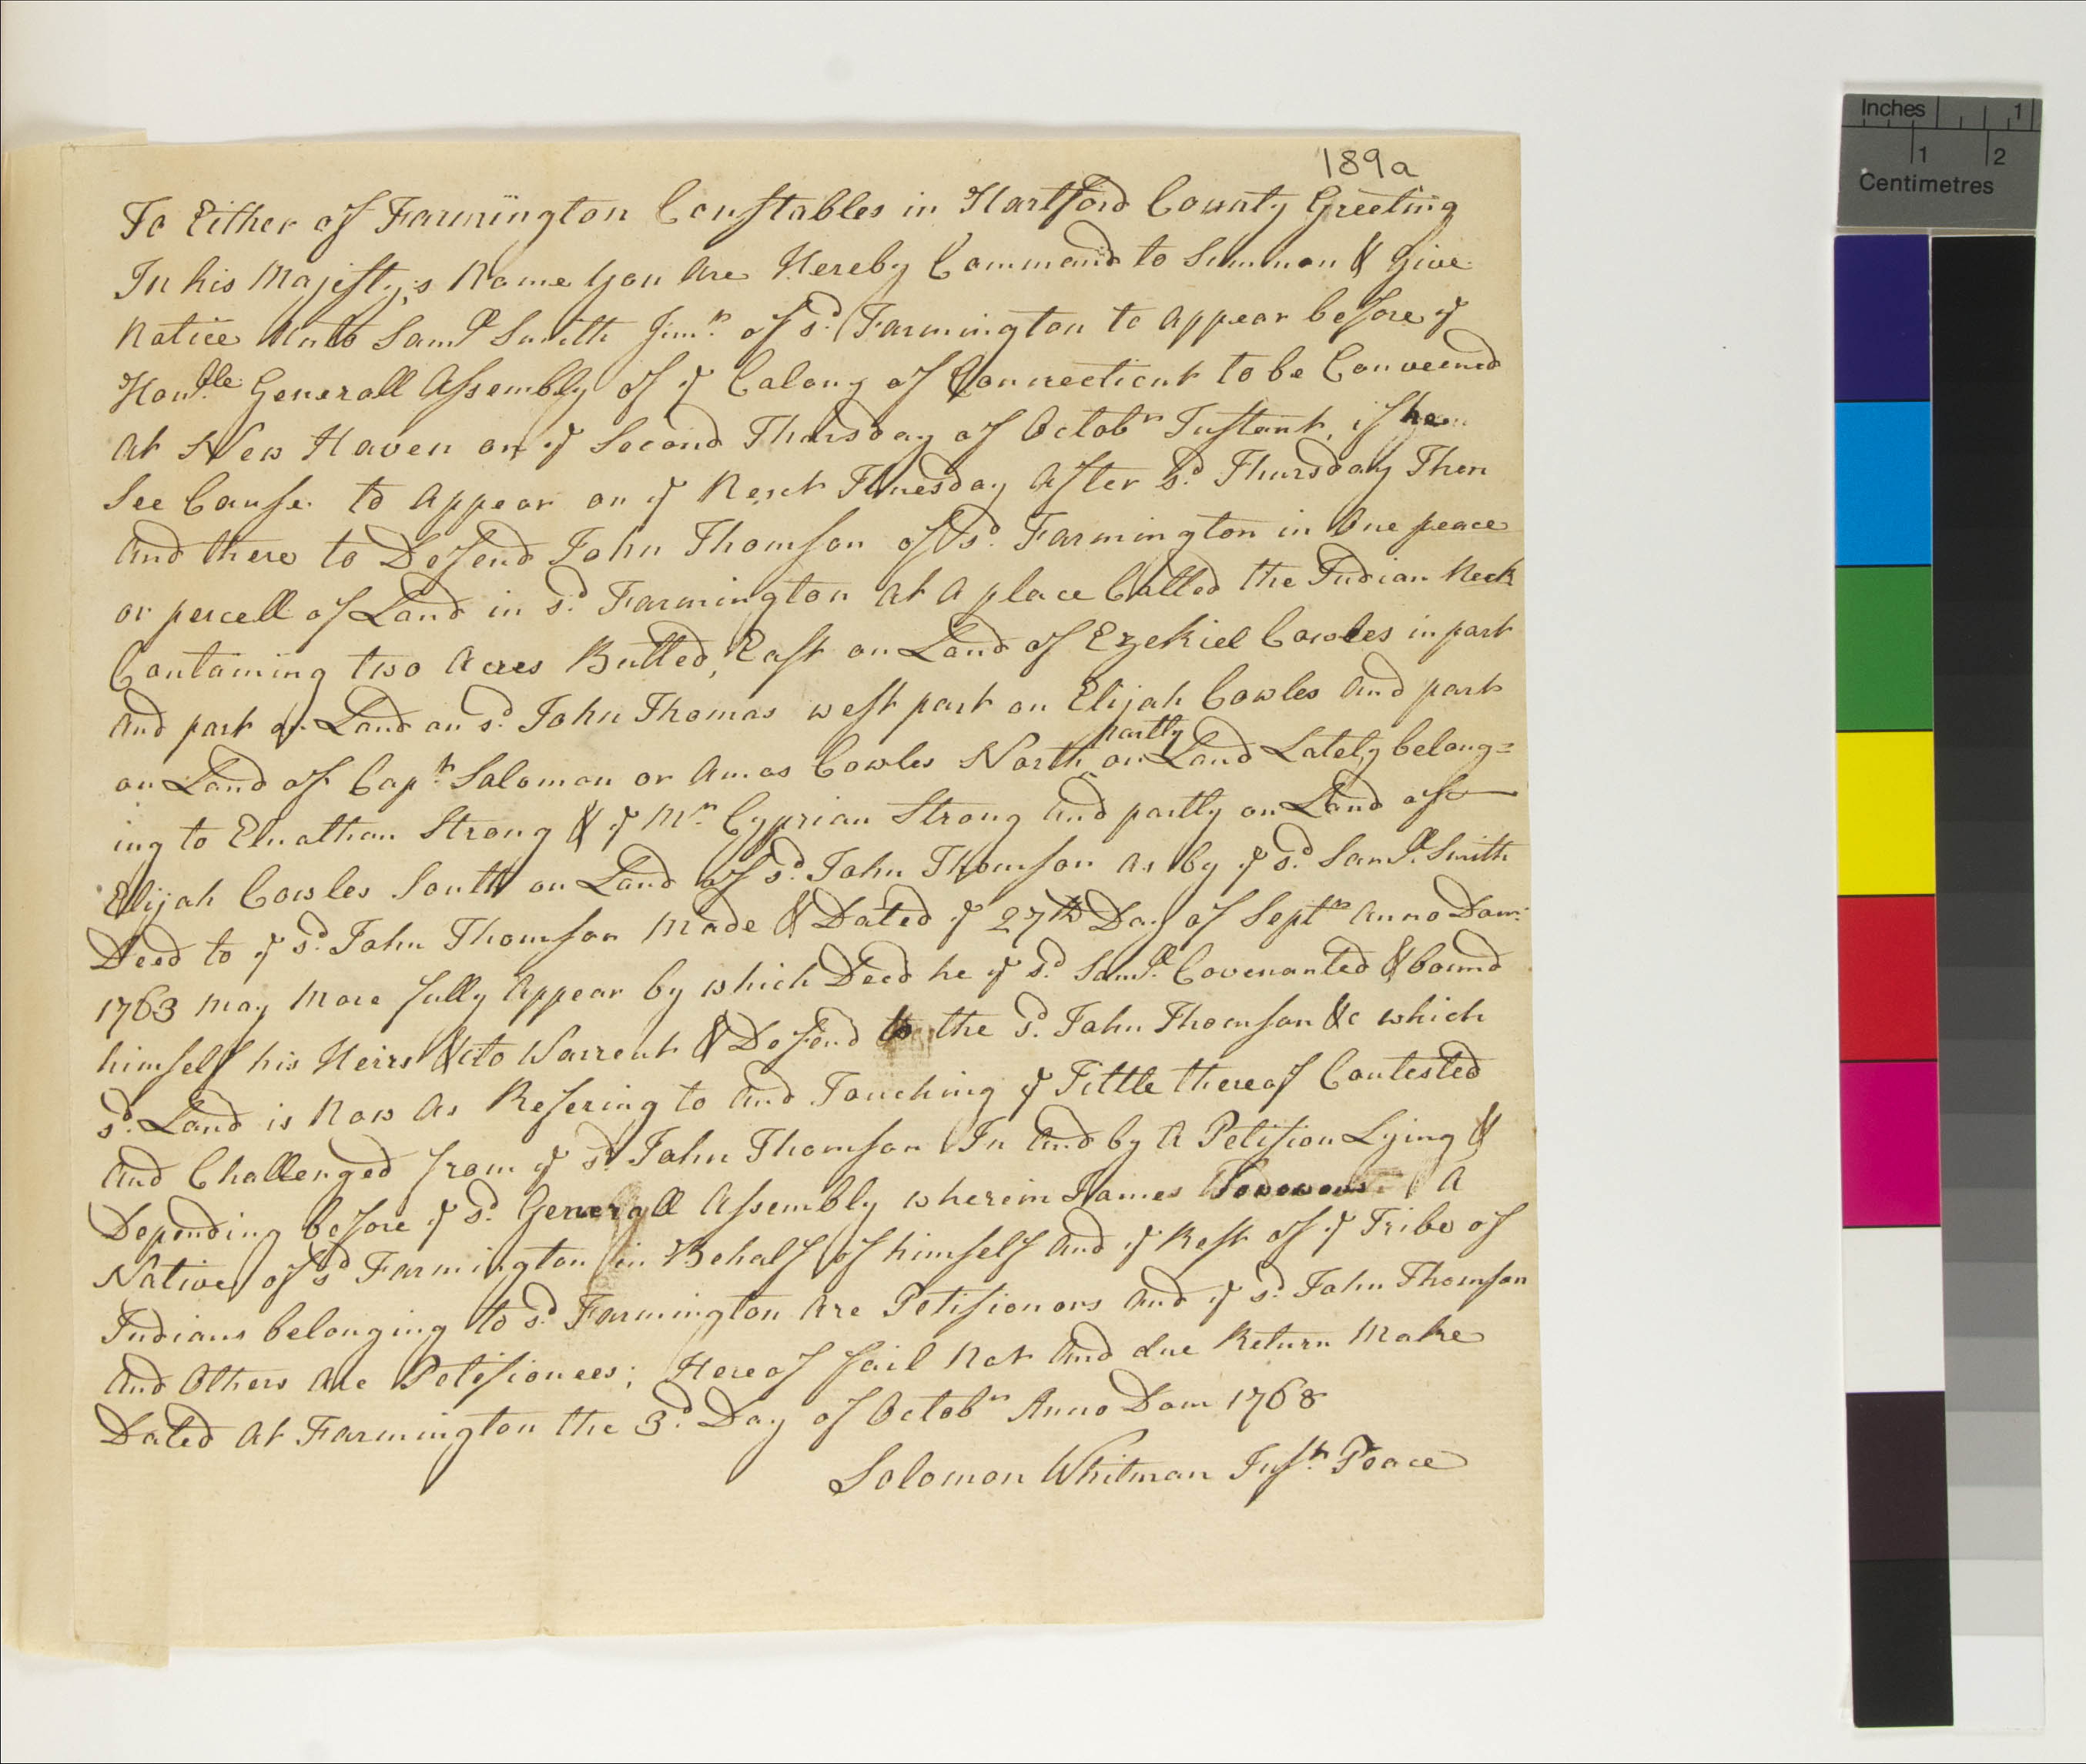 189a
To Either of Farmington Constables in Hartford County Greeting
In his Majesty,s Name you Are Hereby Command to Summon & Give
Notice Unto Saml Smith Junr. of sd. Farmington to Appear before ye
Honble. Generall Assembly of ye Colony of Connecticut to be Conveened
At New Haven on ye Second Thursday of Octobr Instant, if he
See Cause to Appear on ye Next Tuesday After sd. Thursday Then
And there to Defend John Thomson of sd. Farmington in One peace
or percell of Land in sd. Farmington At A place Called the Indian Neck
Containing two Acres Butted, East on Land of Ezekiel Cowles in part
And part on Land on sd. John Thomas west part on Elijah Cowles And part
on Land of Capt. Solomon or Amos Cowles North partly on Land Lately belong=
ing to Elnathan Strong & ye Mr. Cyprian Strong And partly on Land of
Elijah Cowles South on Land of sd. John Thomson As by ye sd. Saml. Smith
Deed to ye sd. John Thomson Made & Dated ye 27th Day of Septr Anno Dom:
1763 may More fully Appear by which Deed he ye sd. Saml. Covenanted & bound
himself his Heirs &c to Warrent & Defend to the sd. John Thomson &c which
sd. Land is Now As Refering to And Touching ye Tittle thereof Contested
And Challenged from ye sd. John Thomson In And by A Petision Lying &
Depending before ye sd. Generall Assembly wherein James A
Native of sd Farmington in Behalf of himself And ye Rest of ye Tribe of
Indians belonging to sd. Farmington Are Petisionors And ye sd. John Thomson
And Others Are Petisionees; Hereof fail Not And due Return Make
Dated At Farmington the 3d. Day of Octobr Anno Dom 1768
Solomon Whitman Just. Peace
Inches 1
1 2
Centimetres